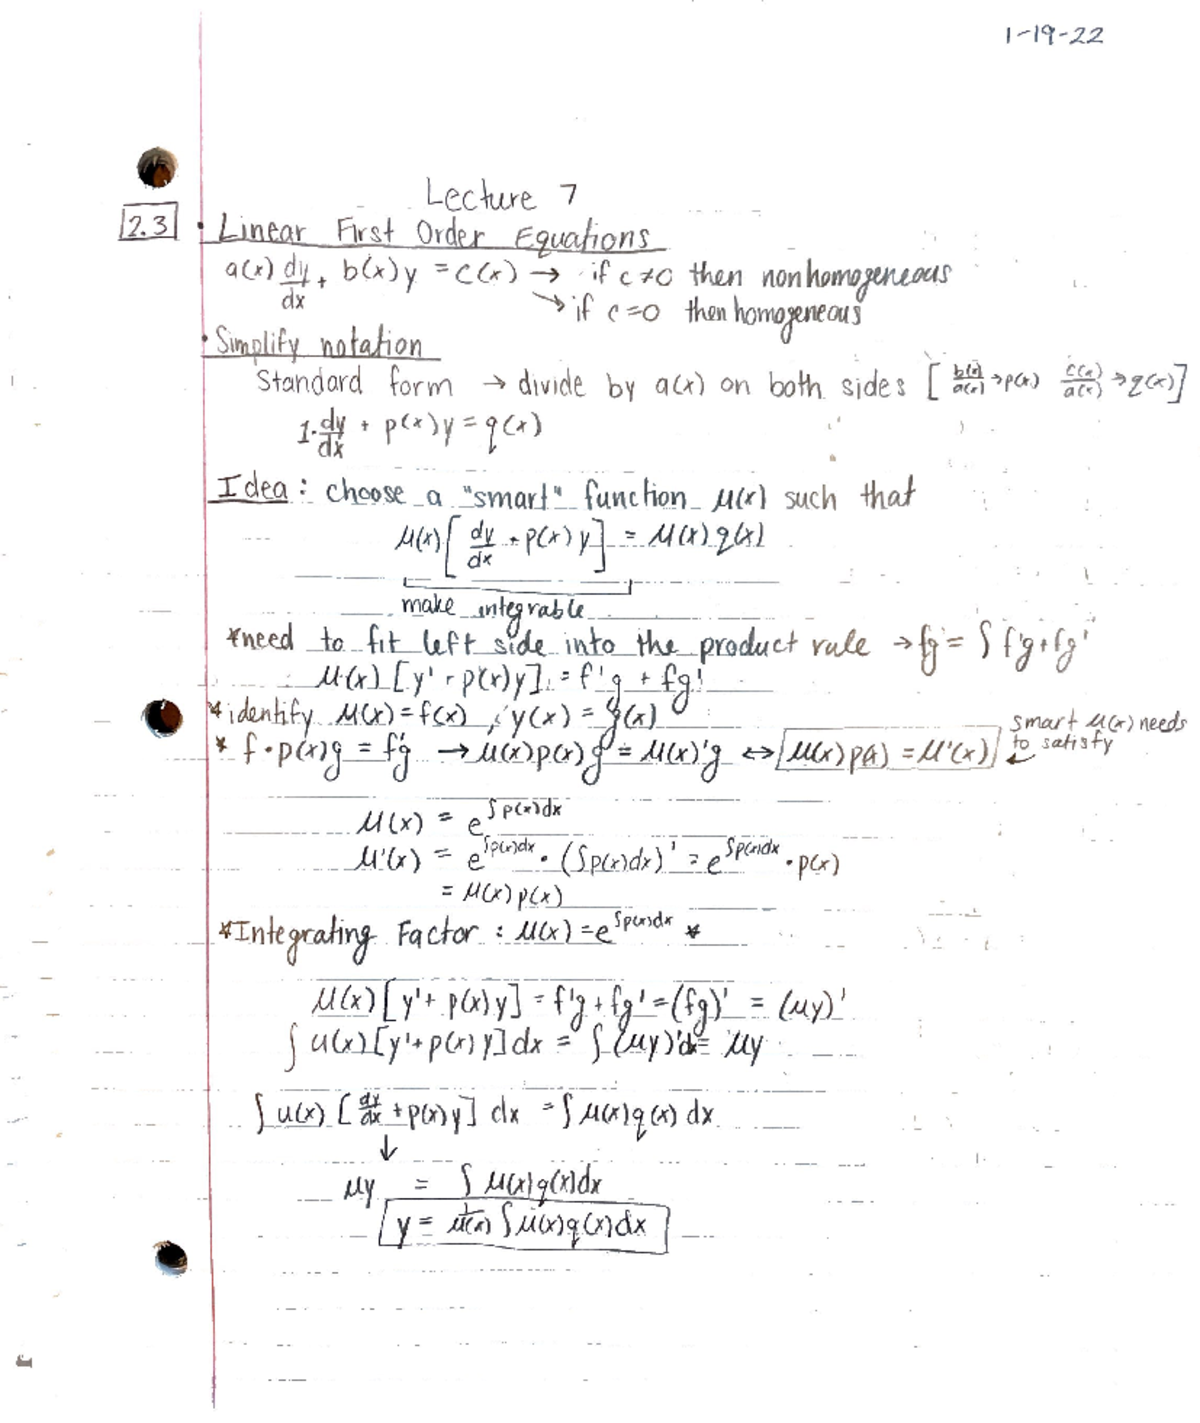 1-19-22
Lecture 7
2.3 • Linear First Order Equations
a(x) dy/dx + b(x)y = c(x) → if c≠0 then nonhomogeneous
→ if c=0 then homogeneous
• Simplify notation
Standard form → divide by a(x) on both sides [ b(x)/a(x) → p(x) c(x)/a(x) → q(x)]
1·dy/dx + p(x)y = q(x)
Idea: choose a "smart" function μ(x) such that
μ(x)[ dy/dx + p(x)y] = μ(x)q(x)
make integrable
*need to fit left side into the product rule → fg = ∫ f'g+fg'
μ(x) [y' + p(x)y] = f'g + fg'
* identify μ(x) = f(x), y(x) = g(x)
* f·p(x)g = f'g → μ(x)p(x)g = μ(x)'g ↔ μ(x)p(x) = μ'(x) smart μ(x) needs to satisfy
μ(x) = e^∫p(x)dx
μ'(x) = e^∫p(x)dx · (∫p(x)dx)' = e^∫p(x)dx · p(x)
= μ(x)p(x)
*Integrating Factor: μ(x) = e^∫p(x)dx *
μ(x)[y' + p(x)y] = f'g + fg' = (fg)' = (μy)'
∫ u(x)[y'+p(x)y]dx = ∫(μy)'dx = μy
∫u(x) [dy/dx + p(x)y] dx = ∫μ(x)q(x) dx
↓
μy = ∫ μ(x)q(x)dx
y = 1/μ(x) ∫μ(x)q(x)dx